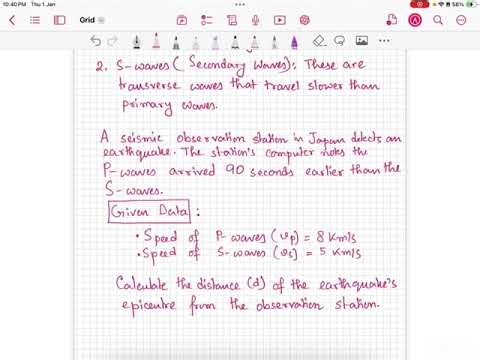 10:40 PM Thu 1 Jan
58%
Grid
2. S-waves (Secondary Waves): These are
transverse waves that travel slower than
primary waves.
A seismic observation station in Japan detects an
earthquake. The station's computer notes the
P-waves arrived 90 seconds earlier than the
S-waves.
Given Data :
• Speed of P-waves (vp) = 8 Km/s
• Speed of S-waves (vs) = 5 Km/s
Calculate the distance (d) of the earthquake's
epicentre from the observation station.